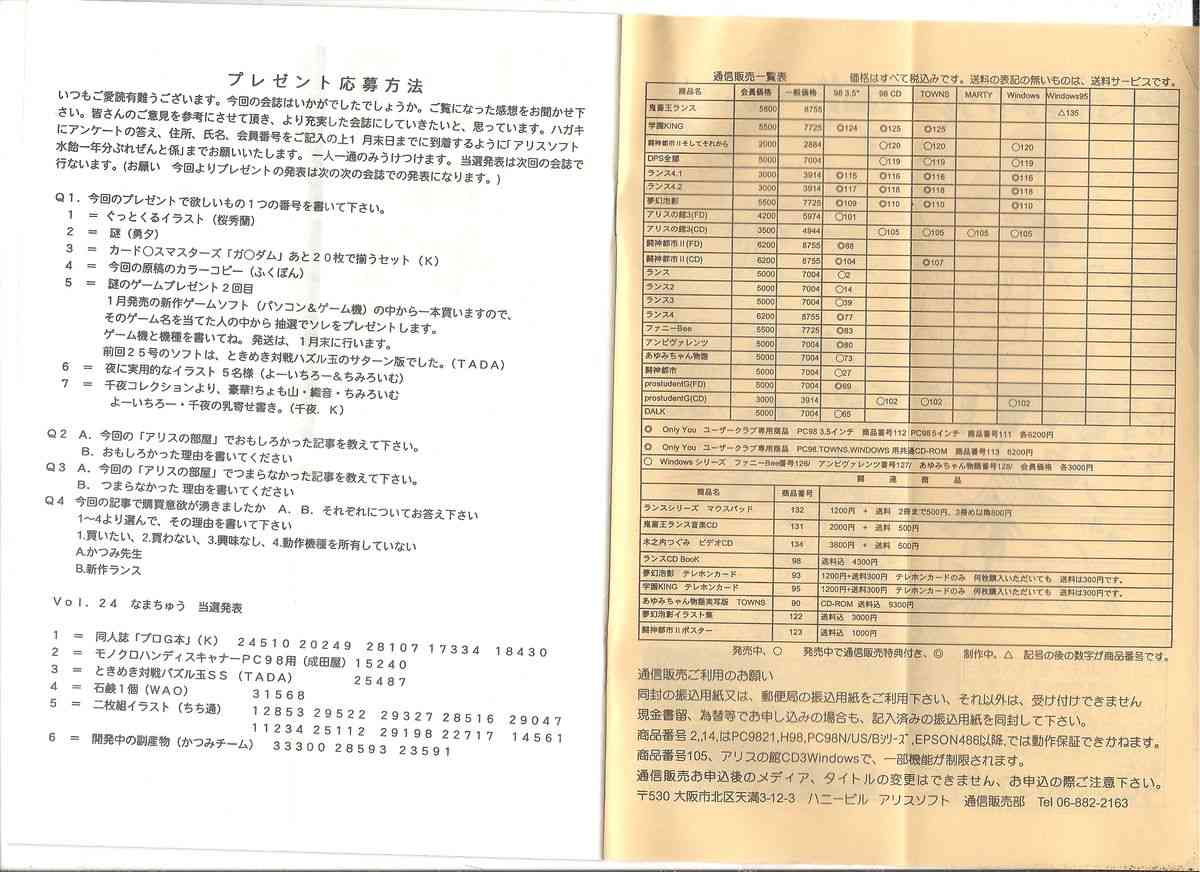 プレゼント応募方法
いつもご愛読有難うございます。今回の会誌はいかがでしたでしょうか。ご覧になった感想をお聞かせ下
さい。皆さんのご意見を参考にさせて頂き、より充実した会誌にしていきたいと、思っています。ハガキ
にアンケートの答え、住所、氏名、会員番号をご記入の上1 月末日までに到着するように「アリスソフト
水飴一年分ぷれぜんと係」までお願いいたします。 一人一通のみうけつけます。 当選発表は次回の会誌で
行ないます。(お願い 今回よりプレゼントの発表は次の次の会誌での発表になります。)
Ｑ１．今回のプレゼントで欲しいもの１つの番号を書いて下さい。
１ ＝ ぐっとくるイラスト（桜秀蘭）
２ ＝ 謎（勇夕）
３ ＝ カード〇スマスターズ「ガ〇ダム」あと２０枚で揃うセット（Ｋ）
４ ＝ 今回の原稿のカラーコピー（ふくぽん）
５ ＝ 謎のゲームプレゼント２回目
１月発売の新作ゲームソフト（パソコン＆ゲーム機）の中から一本買いますので、
そのゲーム名を当てた人の中から 抽選でソレをプレゼントします。
ゲーム機と機種を書いてね。 発送は、１月末に行います。
前回２５号のソフトは、ときめき対戦パズル玉のサターン版でした。（ＴＡＤＡ）
６ ＝ 夜に実用的なイラスト ５名様（よーいちろー＆ちみろいむ）
７ ＝ 千夜コレクションより、豪華!ちょも山・織音・ちみろいむ
よーいちろー・千夜の乳寄せ書き。（千夜．Ｋ）
Ｑ２ Ａ．今回の「アリスの部屋」でおもしろかった記事を教えて下さい。
Ｂ．おもしろかった理由を書いてください
Ｑ３ Ａ．今回の「アリスの部屋」でつまらなかった記事を教えて下さい。
Ｂ． つまらなかった 理由を書いてください
Ｑ４ 今回の記事で購買意欲が湧きましたか Ａ．Ｂ．それぞれについてお答え下さい
1～4より選んで、その理由を書いて下さい
1.買いたい、2.買わない、3.興味なし、4.動作機種を所有していない
A.かつみ先生
B.新作ランス
Ｖｏｌ．２４ なまちゅう 当選発表
１ ＝ 同人誌「プロＧ本」（Ｋ） ２４５１０ ２０２４９ ２８１０７ １７３３４ １８４３０
２ ＝ モノクロハンディスキャナーＰＣ９８用（成田屋）１５２４０
３ ＝ ときめき対戦パズル玉ＳＳ（ＴＡＤＡ） ２５４８７
４ ＝ 石鹸１個（ＷＡＯ） ３１５６８
５ ＝ 二枚組イラスト（ちち通） １２８５３ ２９５２２ ２９３２７ ２８５１６ ２９０４７
１１２３４ ２５１１２ ２９１９８ ２２７１７ １４５６１
６ ＝ 開発中の副産物（かつみチーム） ３３３００ ２８５９３ ２３５９１
通信販売一覧表 価格はすべて税込みです。送料の表記の無いものは、送料サービスです。
商品名 会員価格 一般価格 98 3.5" 98 CD TOWNS MARTY Windows Windows95
鬼畜王ランス 5800 8755 △135
学園KING 5500 7725 ◎124 ◎125 ◎125
闘神都市Ⅱそしてそれから 2000 2884 〇120 〇120 〇120
DPS全部 5000 7004 〇119 〇119 〇119
ランス4.1 3000 3914 ◎115 ◎116 ◎116 ◎116
ランス4.2 3000 3914 ◎117 ◎118 ◎118 ◎118
夢幻泡影 5500 7725 ◎109 ◎110 ◎110 ◎110
アリスの館3(FD) 4200 5974 〇101
アリスの館3(CD) 3500 4944 〇105 〇105 〇105 〇105
闘神都市Ⅱ(FD) 6200 8755 ◎88
闘神都市Ⅱ(CD) 6200 8755 ◎104 ◎107
ランス 5000 7004 〇2
ランス2 5000 7004 〇14
ランス3 5000 7004 〇39
ランス4 6200 8755 ◎77
ファニーBee 5500 7725 ◎83
アンビヴァレンツ 5000 7004 ◎80
あゆみちゃん物語 5000 7004 〇73
闘神都市 5000 7004 〇27
prostudentG(FD) 5000 7004 ◎69
prostudentG(CD) 3000 3914 〇102 〇102 〇102
DALK 5000 7004 〇65
◎ Only You ユーザークラブ専用商品 PC98 3.5インチ 商品番号112 PC98 5インチ 商品番号111 各6200円
◎ Only You ユーザークラブ専用商品 PC98,TOWNS,WINDOWS 用共通CD-ROM 商品番号113 6200円
〇 Windows シリーズ ファニーBee番号126/ アンビヴァレンツ番号127/ あゆみちゃん物語番号128/ 会員価格 各3000円
関 連 商 品
商品名 商品番号
ランスシリーズ マウスパッド 132 1200円 + 送料 2冊まで500円、3冊め以降800円
鬼畜王ランス音楽CD 131 2000円 + 送料 500円
木之内つぐみ ビデオCD 134 3800円 + 送料 500円
ランスCD BooK 98 送料込 4300円
夢幻泡影 テレホンカード 93 1200円+送料300円 テレホンカードのみ 何枚購入いただいても 送料は300円です。
学園KING テレホンカード 95 1200円+送料300円 テレホンカードのみ 何枚購入いただいても 送料は300円です。
あゆみちゃん物語実写版 TOWNS 90 CD-ROM 送料込 9300円
夢幻泡影イラスト集 122 送料込 3000円
闘神都市Ⅱポスター 123 送料込 1000円
発売中、〇 発売中で通信販売特典付き、◎ 制作中、△ 記号の後の数字が商品番号です。
通信販売ご利用のお願い
同封の振込用紙又は、郵便局の振込用紙をご利用下さい、それ以外は、受け付けできません
現金書留、為替等でお申し込みの場合も、記入済みの振込用紙を同封して下さい。
商品番号 2,14,はPC9821,H98,PC98N/US/Bｼﾘｰｽﾞ,EPSON486以降,では動作保証できかねます。
商品番号105、アリスの館CD3Windowsで、一部機能が制限されます。
通信販売お申込後のメディア、タイトルの変更はできません、お申込の際ご注意下さい。
〒530 大阪市北区天満3-12-3 ハニービル アリスソフト 通信販売部 Tel 06-882-2163